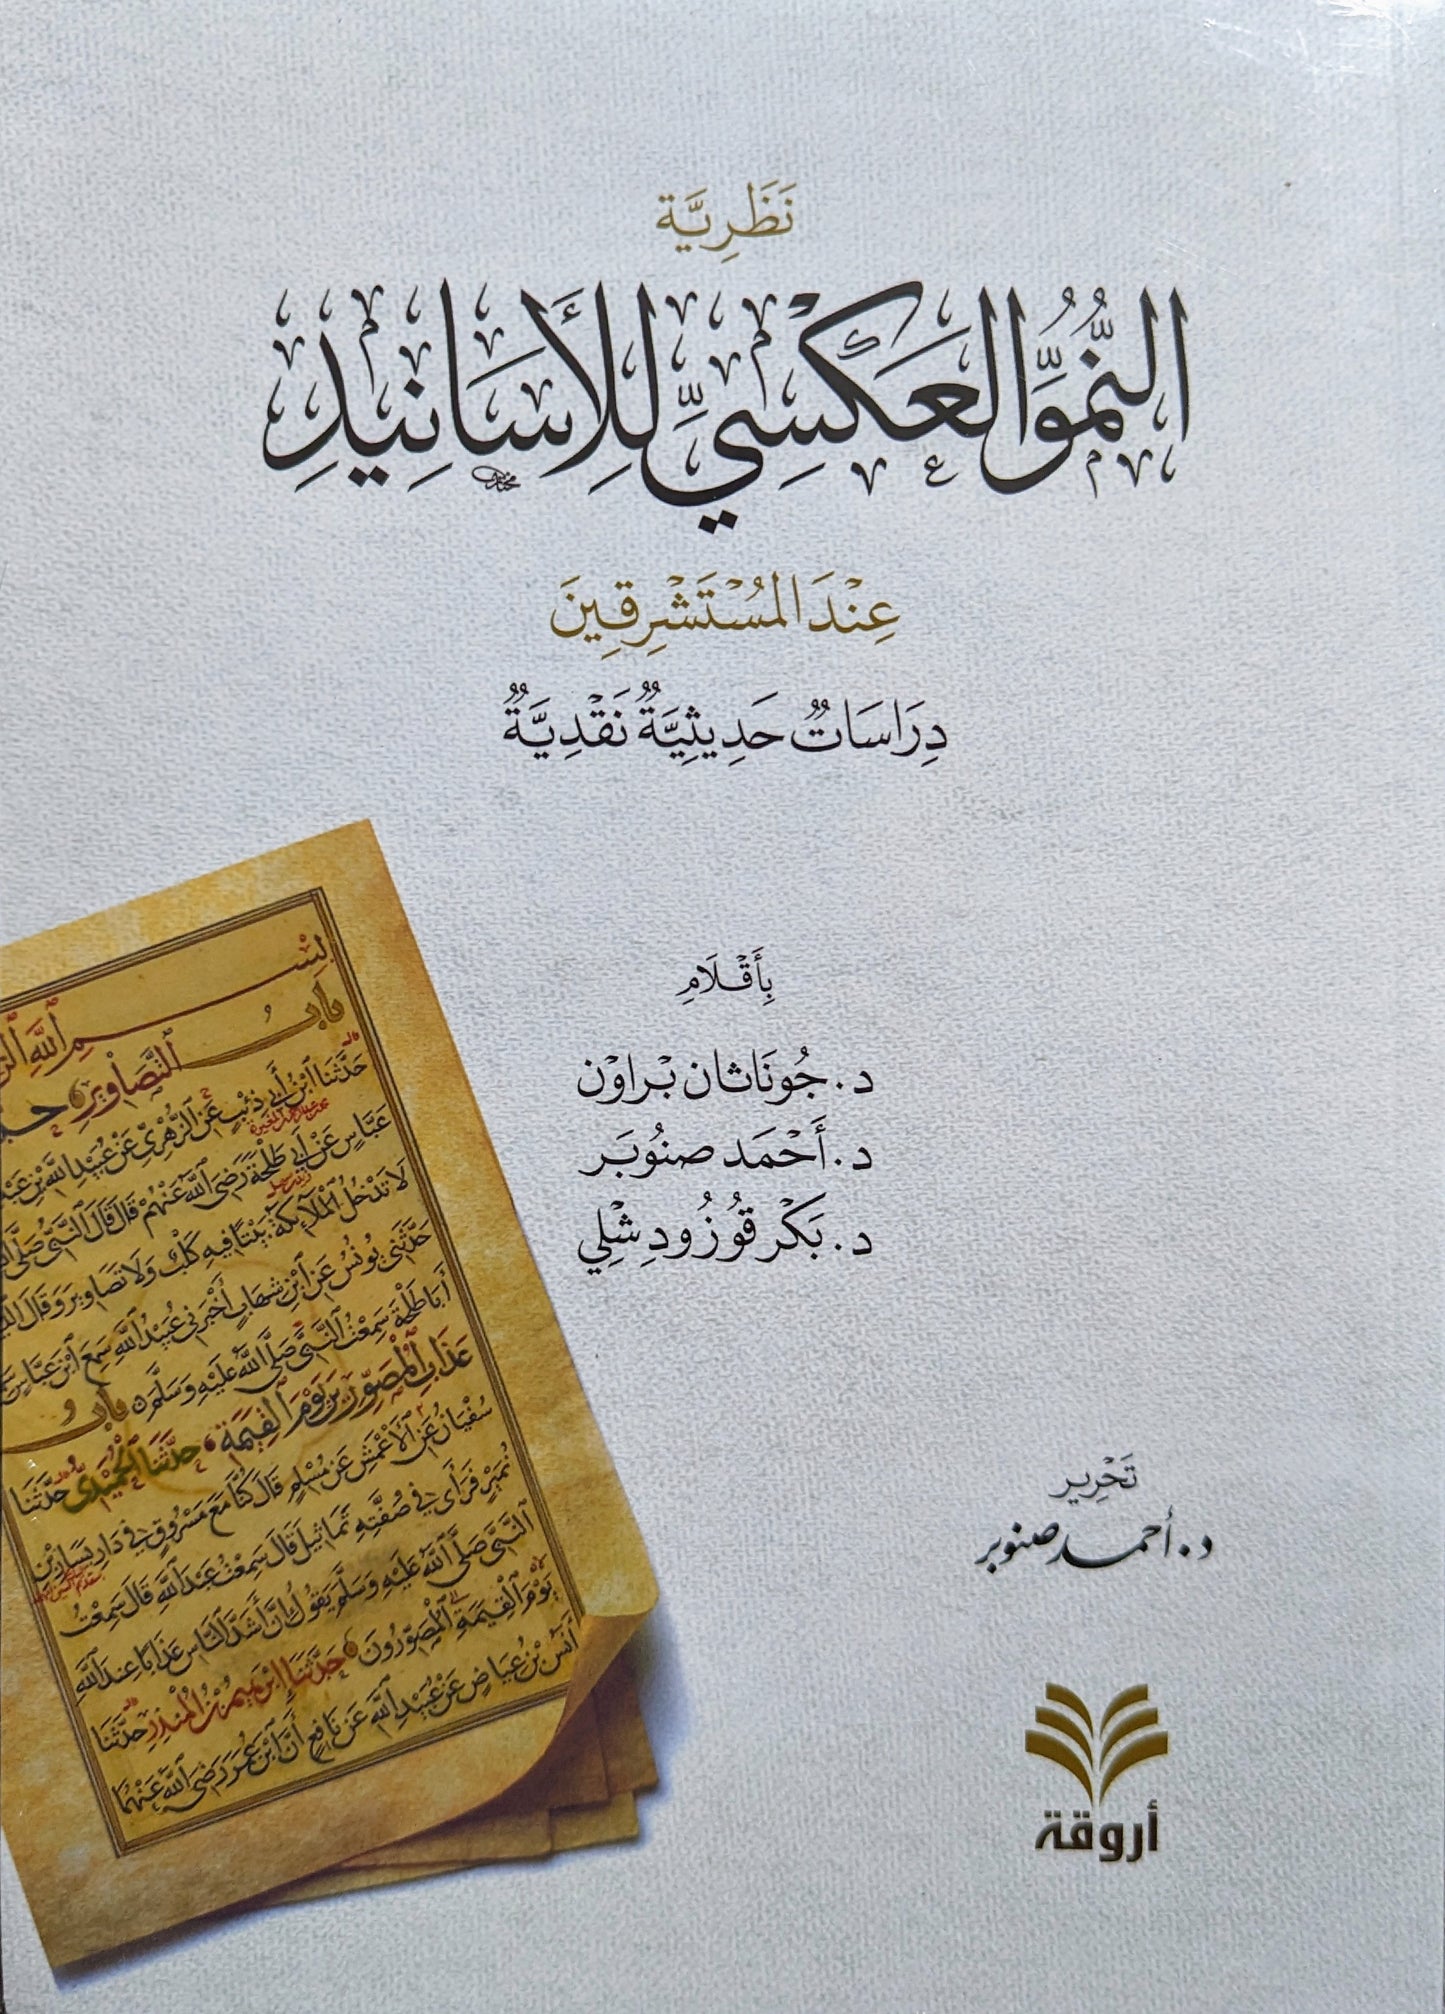 نَظَرِيَّة
النُّمُوُّ العَكْسِيِّ لِلْأَسَانِيدِ
عِنْدَ المُسْتَشْرِقِينَ
دِرَاسَاتٌ حَدِيثِيَّةٌ نَقْدِيَّةٌ
بِأَقْلَامِ
د. جُونَاثَان بْرَاوْن
د. أَحْمَد صنُوبَر
د. بَكْر قُوزُودِشْلِي
تَحْرِير
د. أحمد صنوبر
أروقة
بِسْمِ ٱللَّهِ
بَابُ ٱلتَّصَاوِيرِ
حَدَّثَنَا ٱبْنُ أَبِي ذِئْبٍ عَنِ ٱلزُّهْرِيِّ عَنْ عُبَيْدِ ٱللَّهِ بْنِ
عَبَّاسٍ عَنْ أَبِي طَلْحَةَ رَضِيَ ٱللَّهُ عَنْهُمْ قَالَ قَالَ ٱلنَّبِيُّ
لَا تَدْخُلُ ٱلْمَلَآئِكَةُ بَيْتًا فِيهِ كَلْبٌ وَلَا تَصَاوِيرُ وَقَالَ
حَدَّثَنِي يُونُسُ عَنِ ٱبْنِ شِهَابٍ أَخْبَرَنِي عُبَيْدُ ٱللَّهِ سَمِعَ ٱبْنَ عَبَّاسٍ
أَبَا طَلْحَةَ سَمِعْتُ ٱلنَّبِيَّ صَلَّى ٱللَّهُ عَلَيْهِ وَسَلَّمَ بَابُ
عَذَابِ ٱلْمُصَوِّرِينَ يَوْمَ ٱلْقِيَمَةِ حَدَّثَنَا ٱلْحُمَيْدِيُّ حَدَّثَنَا
سُفْيَانُ عَنِ ٱلْأَعْمَشِ عَنْ مُسْلِمٍ قَالَ كُنَّا مَعَ مَسْرُوقٍ فِي دَارِ يَسَارِ بْنِ
نُمَيْرٍ فَرَأَى فِي صُفَّتِهِ تَمَاثِيلَ قَالَ سَمِعْتُ عَبْدَ ٱللَّهِ قَالَ سَمِعْتُ
ٱلنَّبِيَّ صَلَّى ٱللَّهُ عَلَيْهِ وَسَلَّمَ يَقُولُ إِنَّ أَشَدَّ ٱلنَّاسِ عَذَابًا عِنْدَ ٱللَّهِ
يَوْمَ ٱلْقِيَمَةِ ٱلْمُصَوِّرُونَ حَدَّثَنَا إِبْرَهِيمُ بْنُ ٱلْمُنْذِرِ حَدَّثَنَا
أَنَسُ بْنُ عِيَاضٍ عَنْ عُبَيْدِ ٱللَّهِ عَنْ نَافِعٍ أَنَّ ٱبْنَ عُمَرَ رَضِيَ ٱللَّهُ عَنْهُمَا